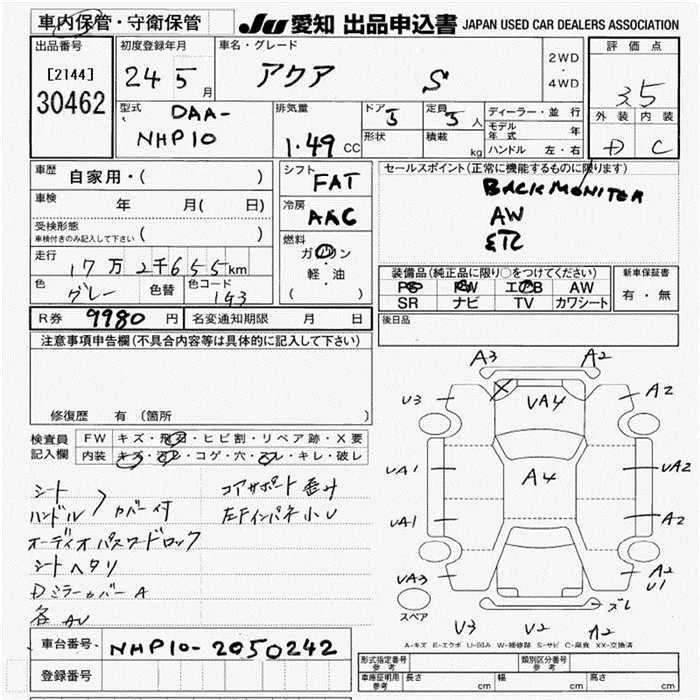 車内保管・守衛保管
JU 愛知 出品申込書 JAPAN USED CAR DEALERS ASSOCIATION
出品番号
[2144]
30462
初度登録年月
24 5月
車名・グレード
アクア S
2WD
・
4WD
評価点
3.5
外装 内装
D C
型式
DAA-
NHP10
排気量
1.49 CC
ドア 5
定員 5 人
形状
積載 kg
ディーラー・並行
モデル年式 年
ハンドル 左・右
車歴
自家用・( )
車検
年 月( 日)
受検形態
車検付きのみ記入して下さい ( )
走行
17万2千655km
色 グレー 色替 色コード 1G3
シフト
FAT
冷房
AAC
燃料
ガソリン
・
軽・油
( )
セールスポイント(正常に機能するものに限ります)
BACKMONITER
AW
ETC
装備品(純正品に限り○をつけてください)
PS PW エアB AW
SR ナビ TV カワシート
新車保証書
有・無
R券 9980 円 名変通知期限 月 日
後日品
注意事項申告欄(不具合内容等は具体的に記入して下さい)
修復歴 有(箇所 )
検査員記入欄
FW キズ・飛石・ヒビ割・リペア跡・X要
内装 キズ・ヨゴレ・コゲ・穴・スレ・キレ・破レ
シート
ハンドル カバー付
コアサポート歪み
左Fインパネ小U
オーディオパスワードロック
シートヘタリ
Dミラーカバー A
各AU
A3 A2
U3 VA4 A2
UA1 A4 UA2
UA1 A2
UA3 A2
U1
スペア
ズレ
U3 U2 A2
A-キズ E-エクボ U-凹み W-補修跡 S-サビ C-腐食 XX-交換済
車台番号 NHP10-2050242
登録番号
形式指定番号
参考
類別区分番号
参考
車庫証明用
参考
長さ cm 幅 cm 高さ cm